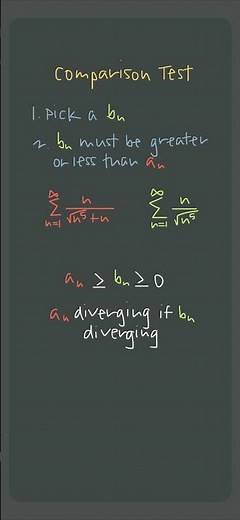 Comparison Test
1. Pick a bₙ
2. bₙ must be greater
or less than aₙ
∞ ∑ n=1 n/√(n⁵+n) ∞ ∑ n=1 n/√(n⁵)
aₙ ≥ bₙ ≥ 0
aₙ diverging if bₙ
diverging